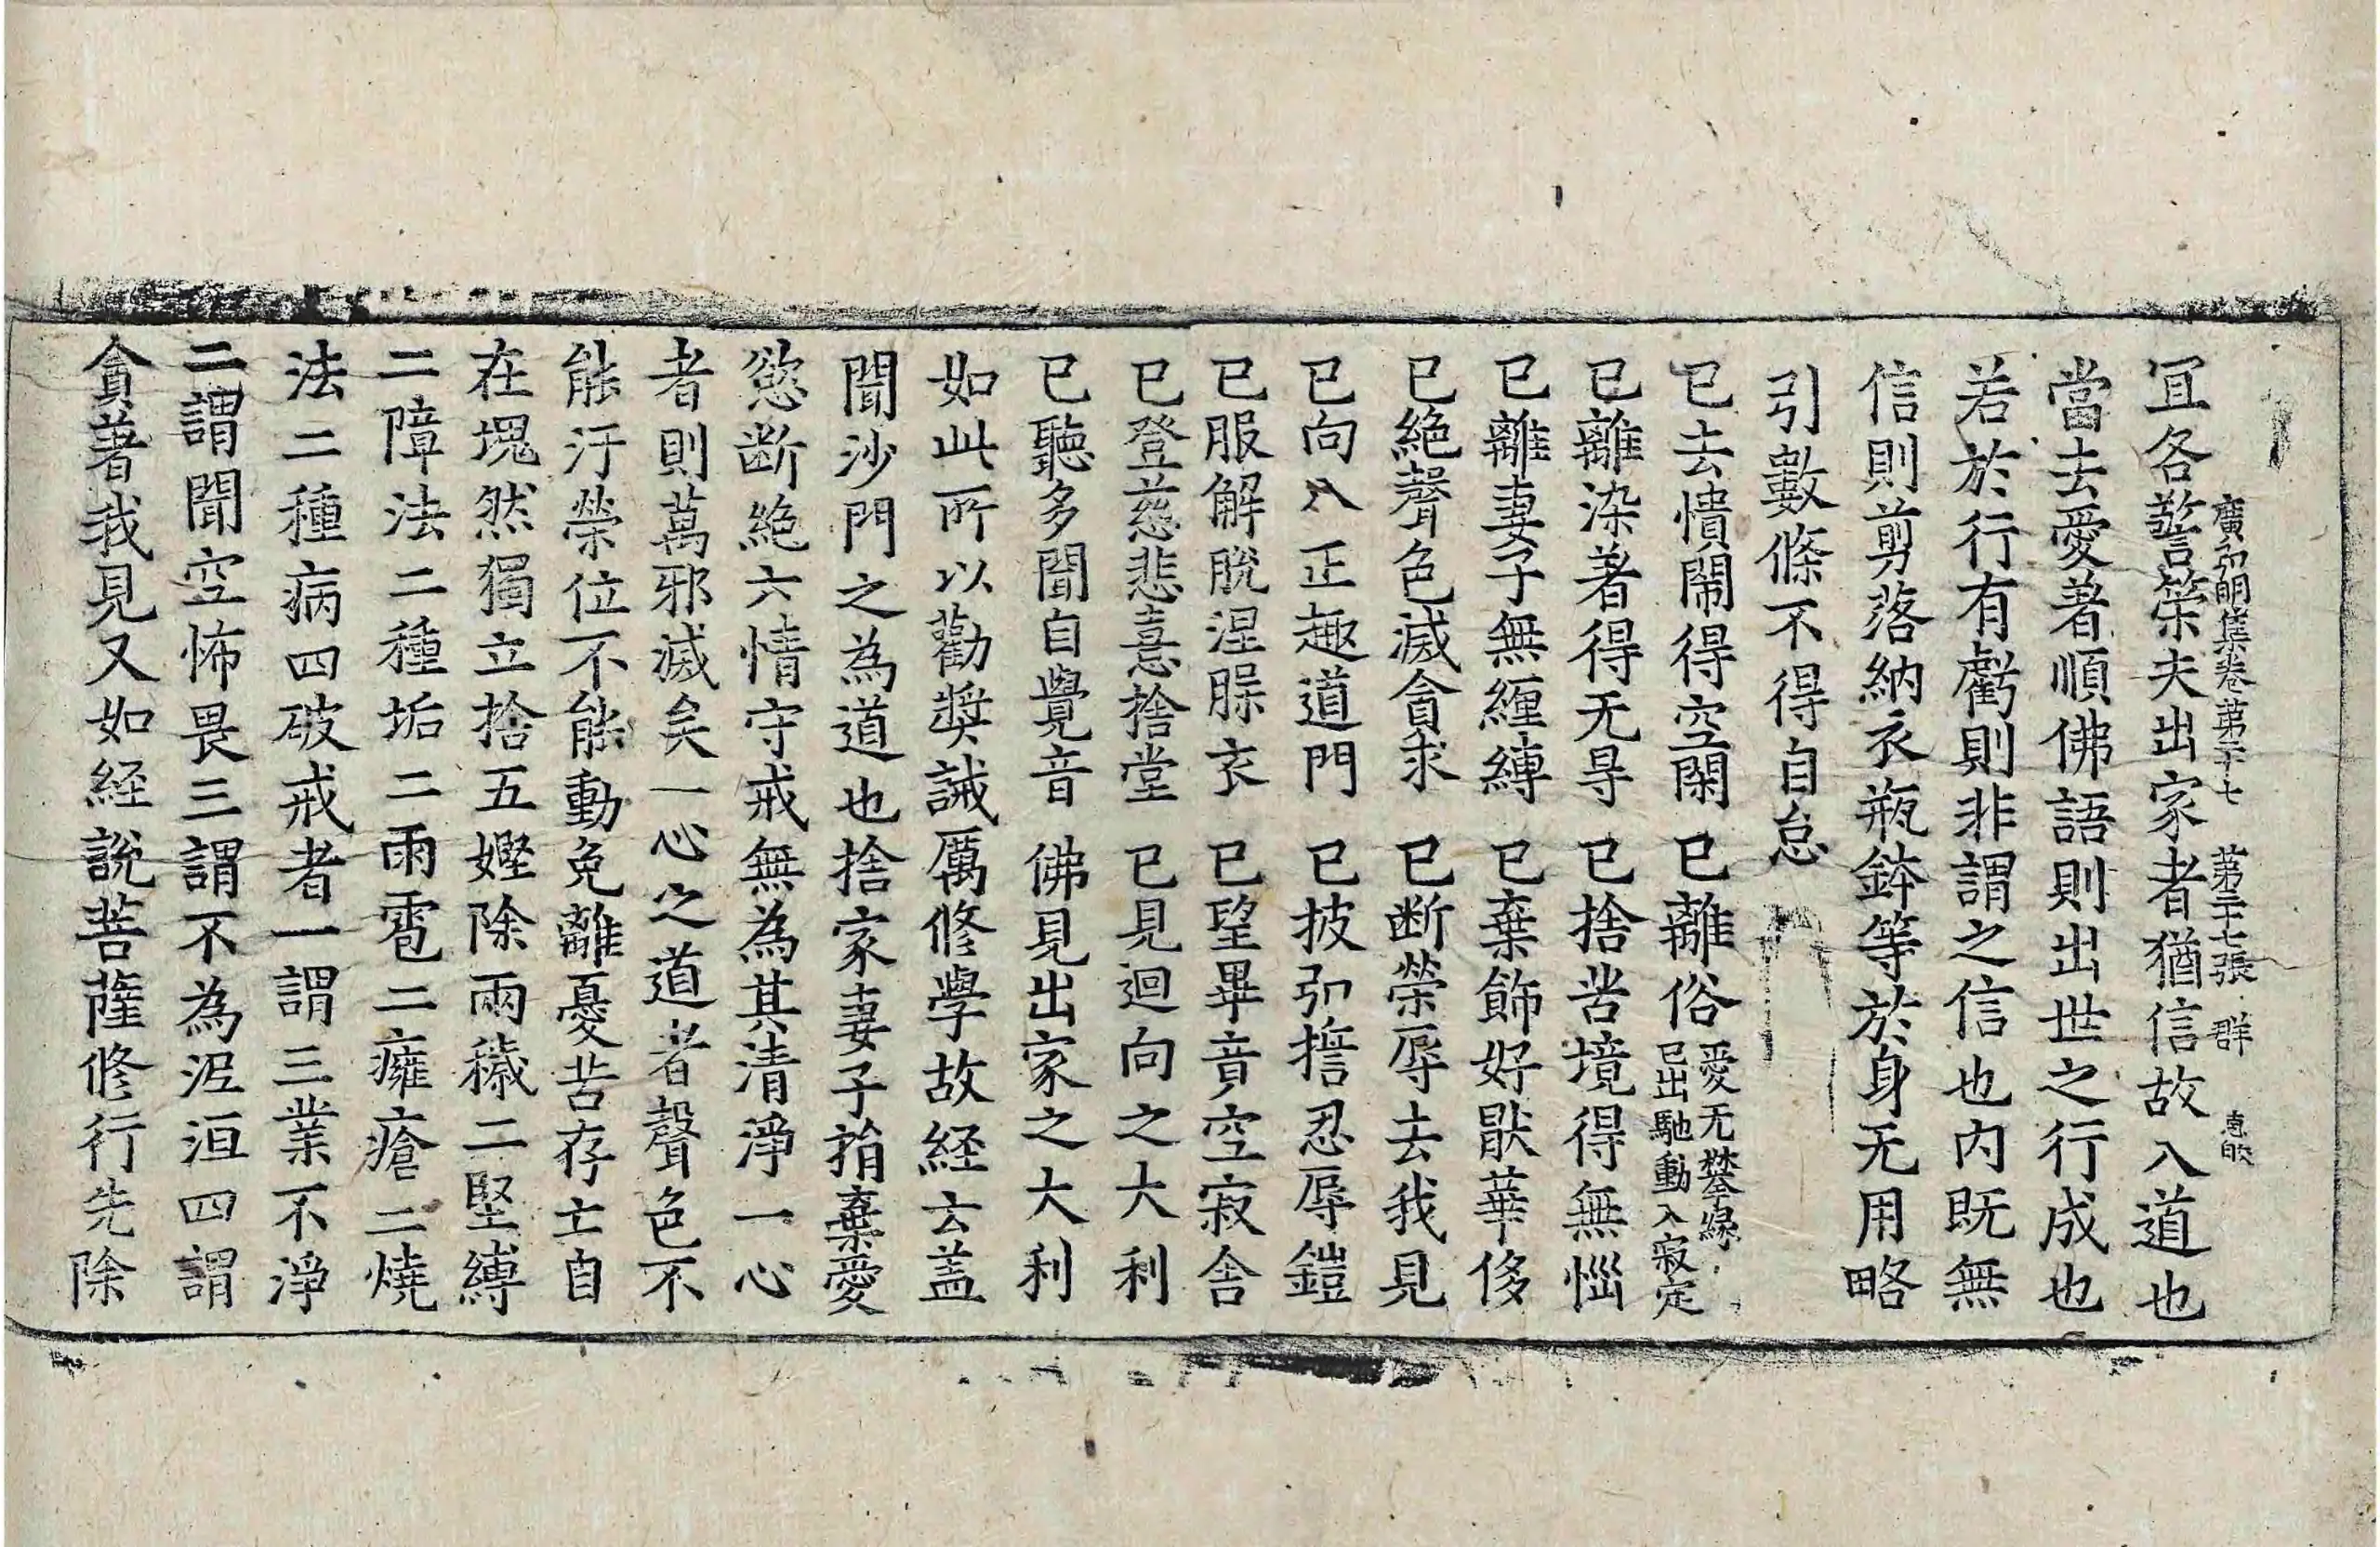 廣弘明集卷第二十七　第二十七張　群
宜各警策夫出家者猶信故入道也
當去愛著順佛語則出世之行成也
若於行有虧則非謂之信也内既無
信則剪落納衣瓶鉢等於身无用略
引數條不得自怠
已去憒閙得空閑　已離俗愛无攀緣已出馳動入寂定
已離染著得无㝵　已捨苦境得無惱
已離妻子無纏縛　已棄飾好猒華侈
已絶聲色滅貪求　已断榮辱去我見
已向入正趣道門　已披弘誓忍辱鎧
已服解脫涅脲衣　已望畢竟空寂舍
已登慈悲憙捨堂　已見迴向之大利
已聽多聞自覺音　佛見出家之大利
如此所以勸奬誡厲修學故経云盖
聞沙門之為道也捨家妻子捐棄愛
慾断絶六情守戒無為其清淨一心
者則萬邪滅矣一心之道者聲色不
能汙榮位不能動免離憂苦存亡自
在塊然獨立捨五嬺除兩穢二堅縛
二障法二種垢二雨雹二癰瘡二燒
法二種病四破戒者一謂三業不淨
二謂聞空怖畏三謂不為泥洹四謂
貪著我見又如経說菩薩修行先除